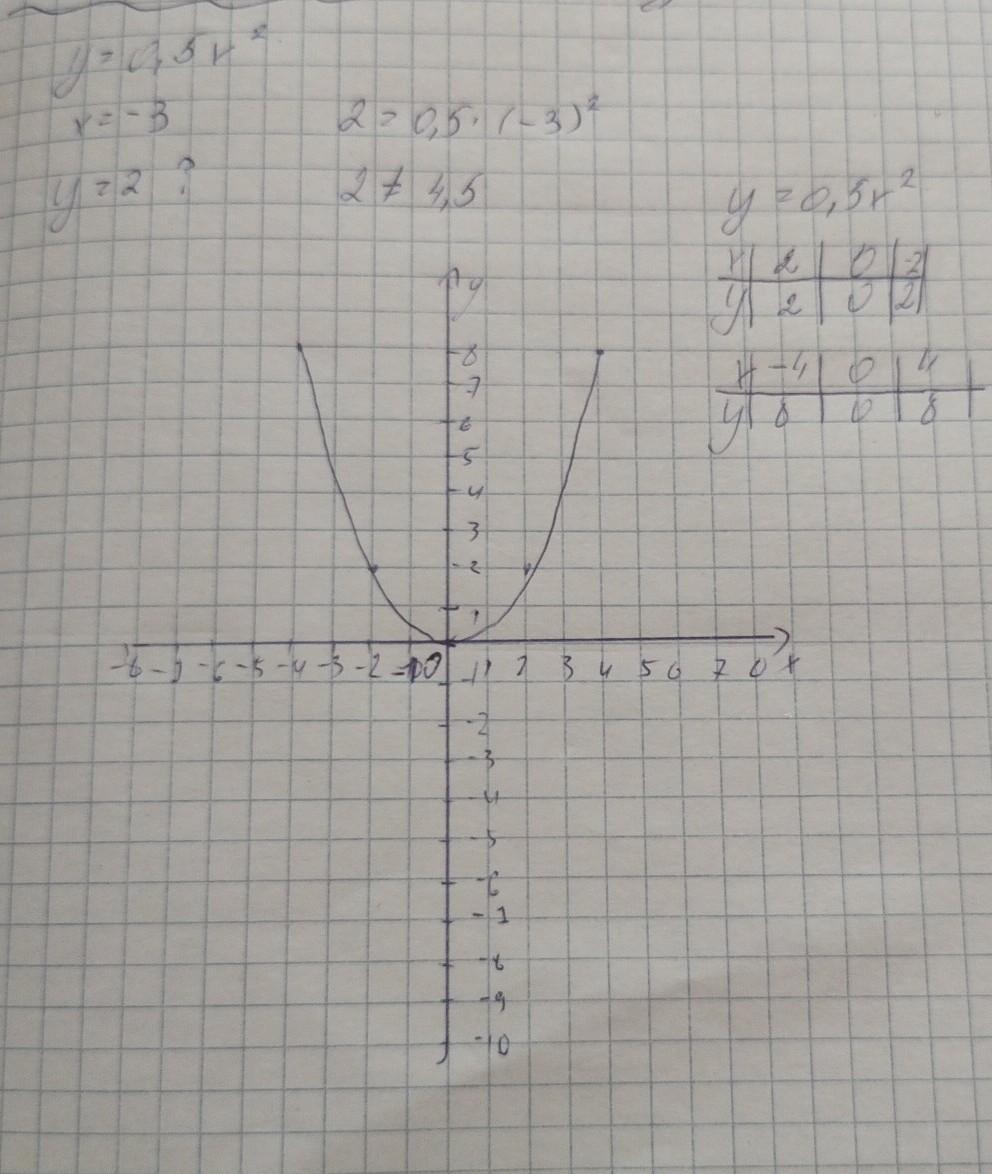 y = 0,5x²
x = -3
2 = 0,5 · (-3)²
y = 2 ?
2 ≠ 4,5
y = 0,5x²
x | 2 | 0 | -2
y | 2 | 0 | 2
x | -4 | 0 | 4
y | 8 | 0 | 8
y
8
7
6
5
4
3
2
1
-8 -7 -6 -5 -4 -3 -2 -1 0 1 2 3 4 5 6 7 8 x
-1
-2
-3
-4
-5
-6
-7
-8
-9
-10